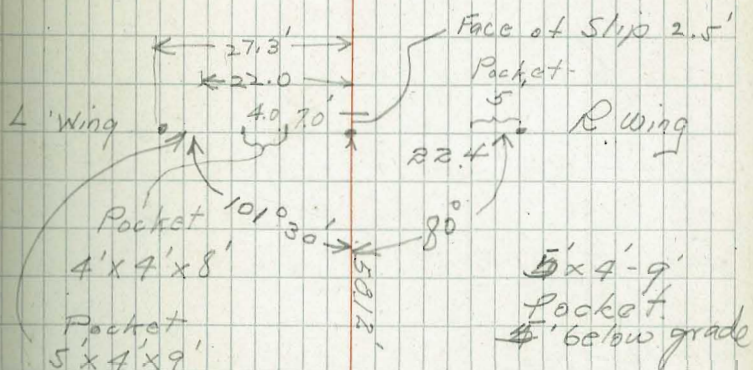 27.3'
Face of Slip 2.5'
22.0
Pocket
5'
L Wing
4.0 7.0'
R wing
22.4
Pocket
4' x 4' x 8'
101° 30'
80°
5812'
5' x 4' - 9'
Pocket
' below grade
Pocket
5' x 4' x 9'